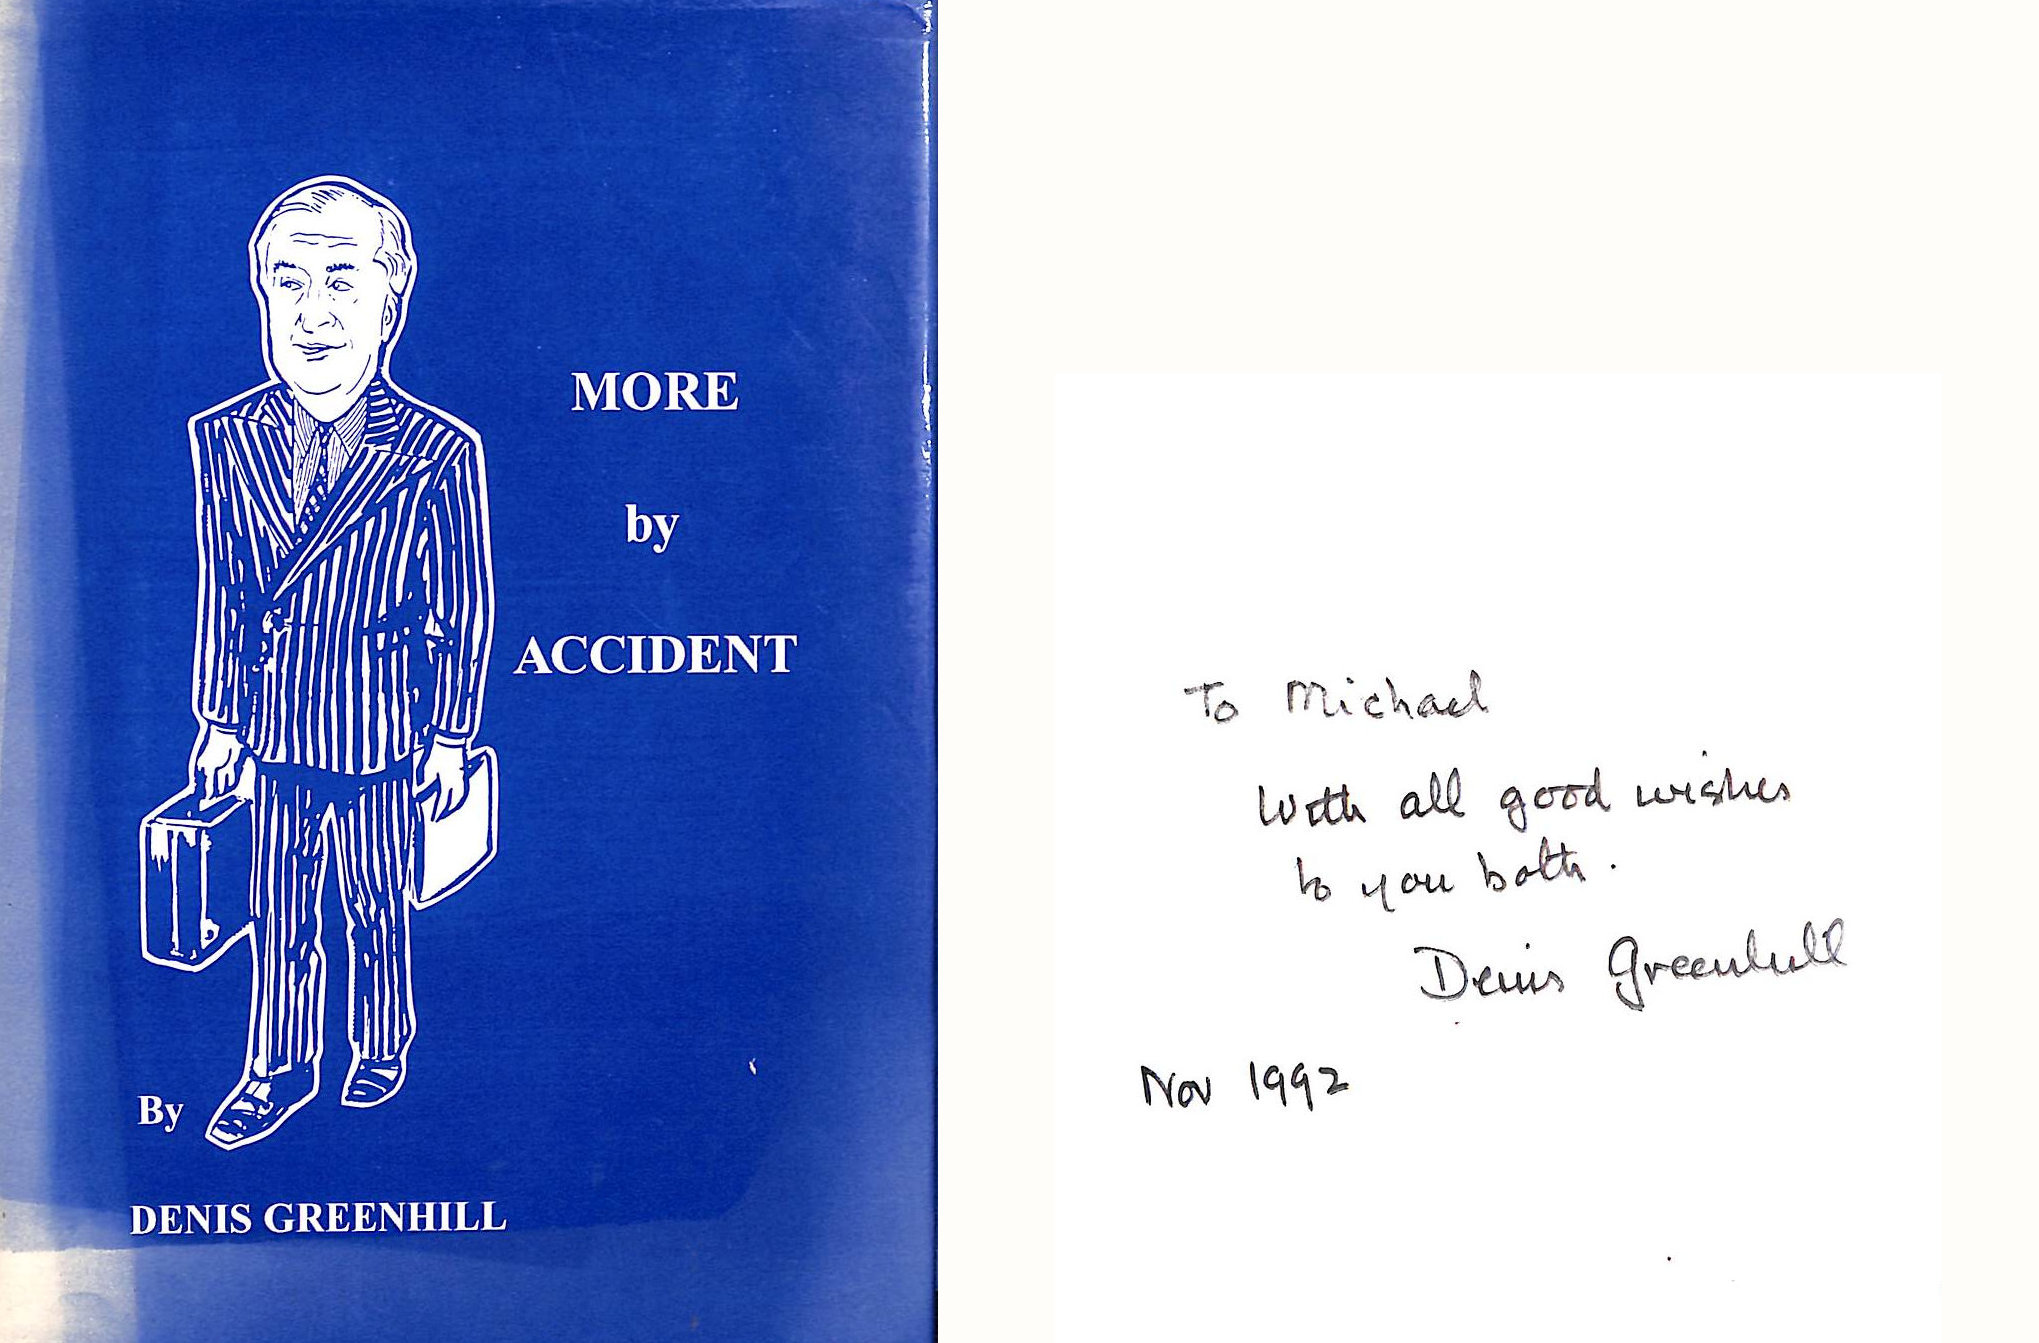 MORE
by
ACCIDENT
By
DENIS GREENHILL
To Michael
With all good wishes
to you both.
Denis Greenhill
Nov 1992